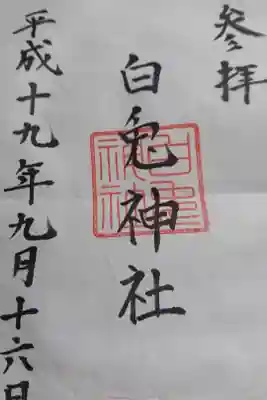 参拝
白兎神社
平成十九年九月十六日